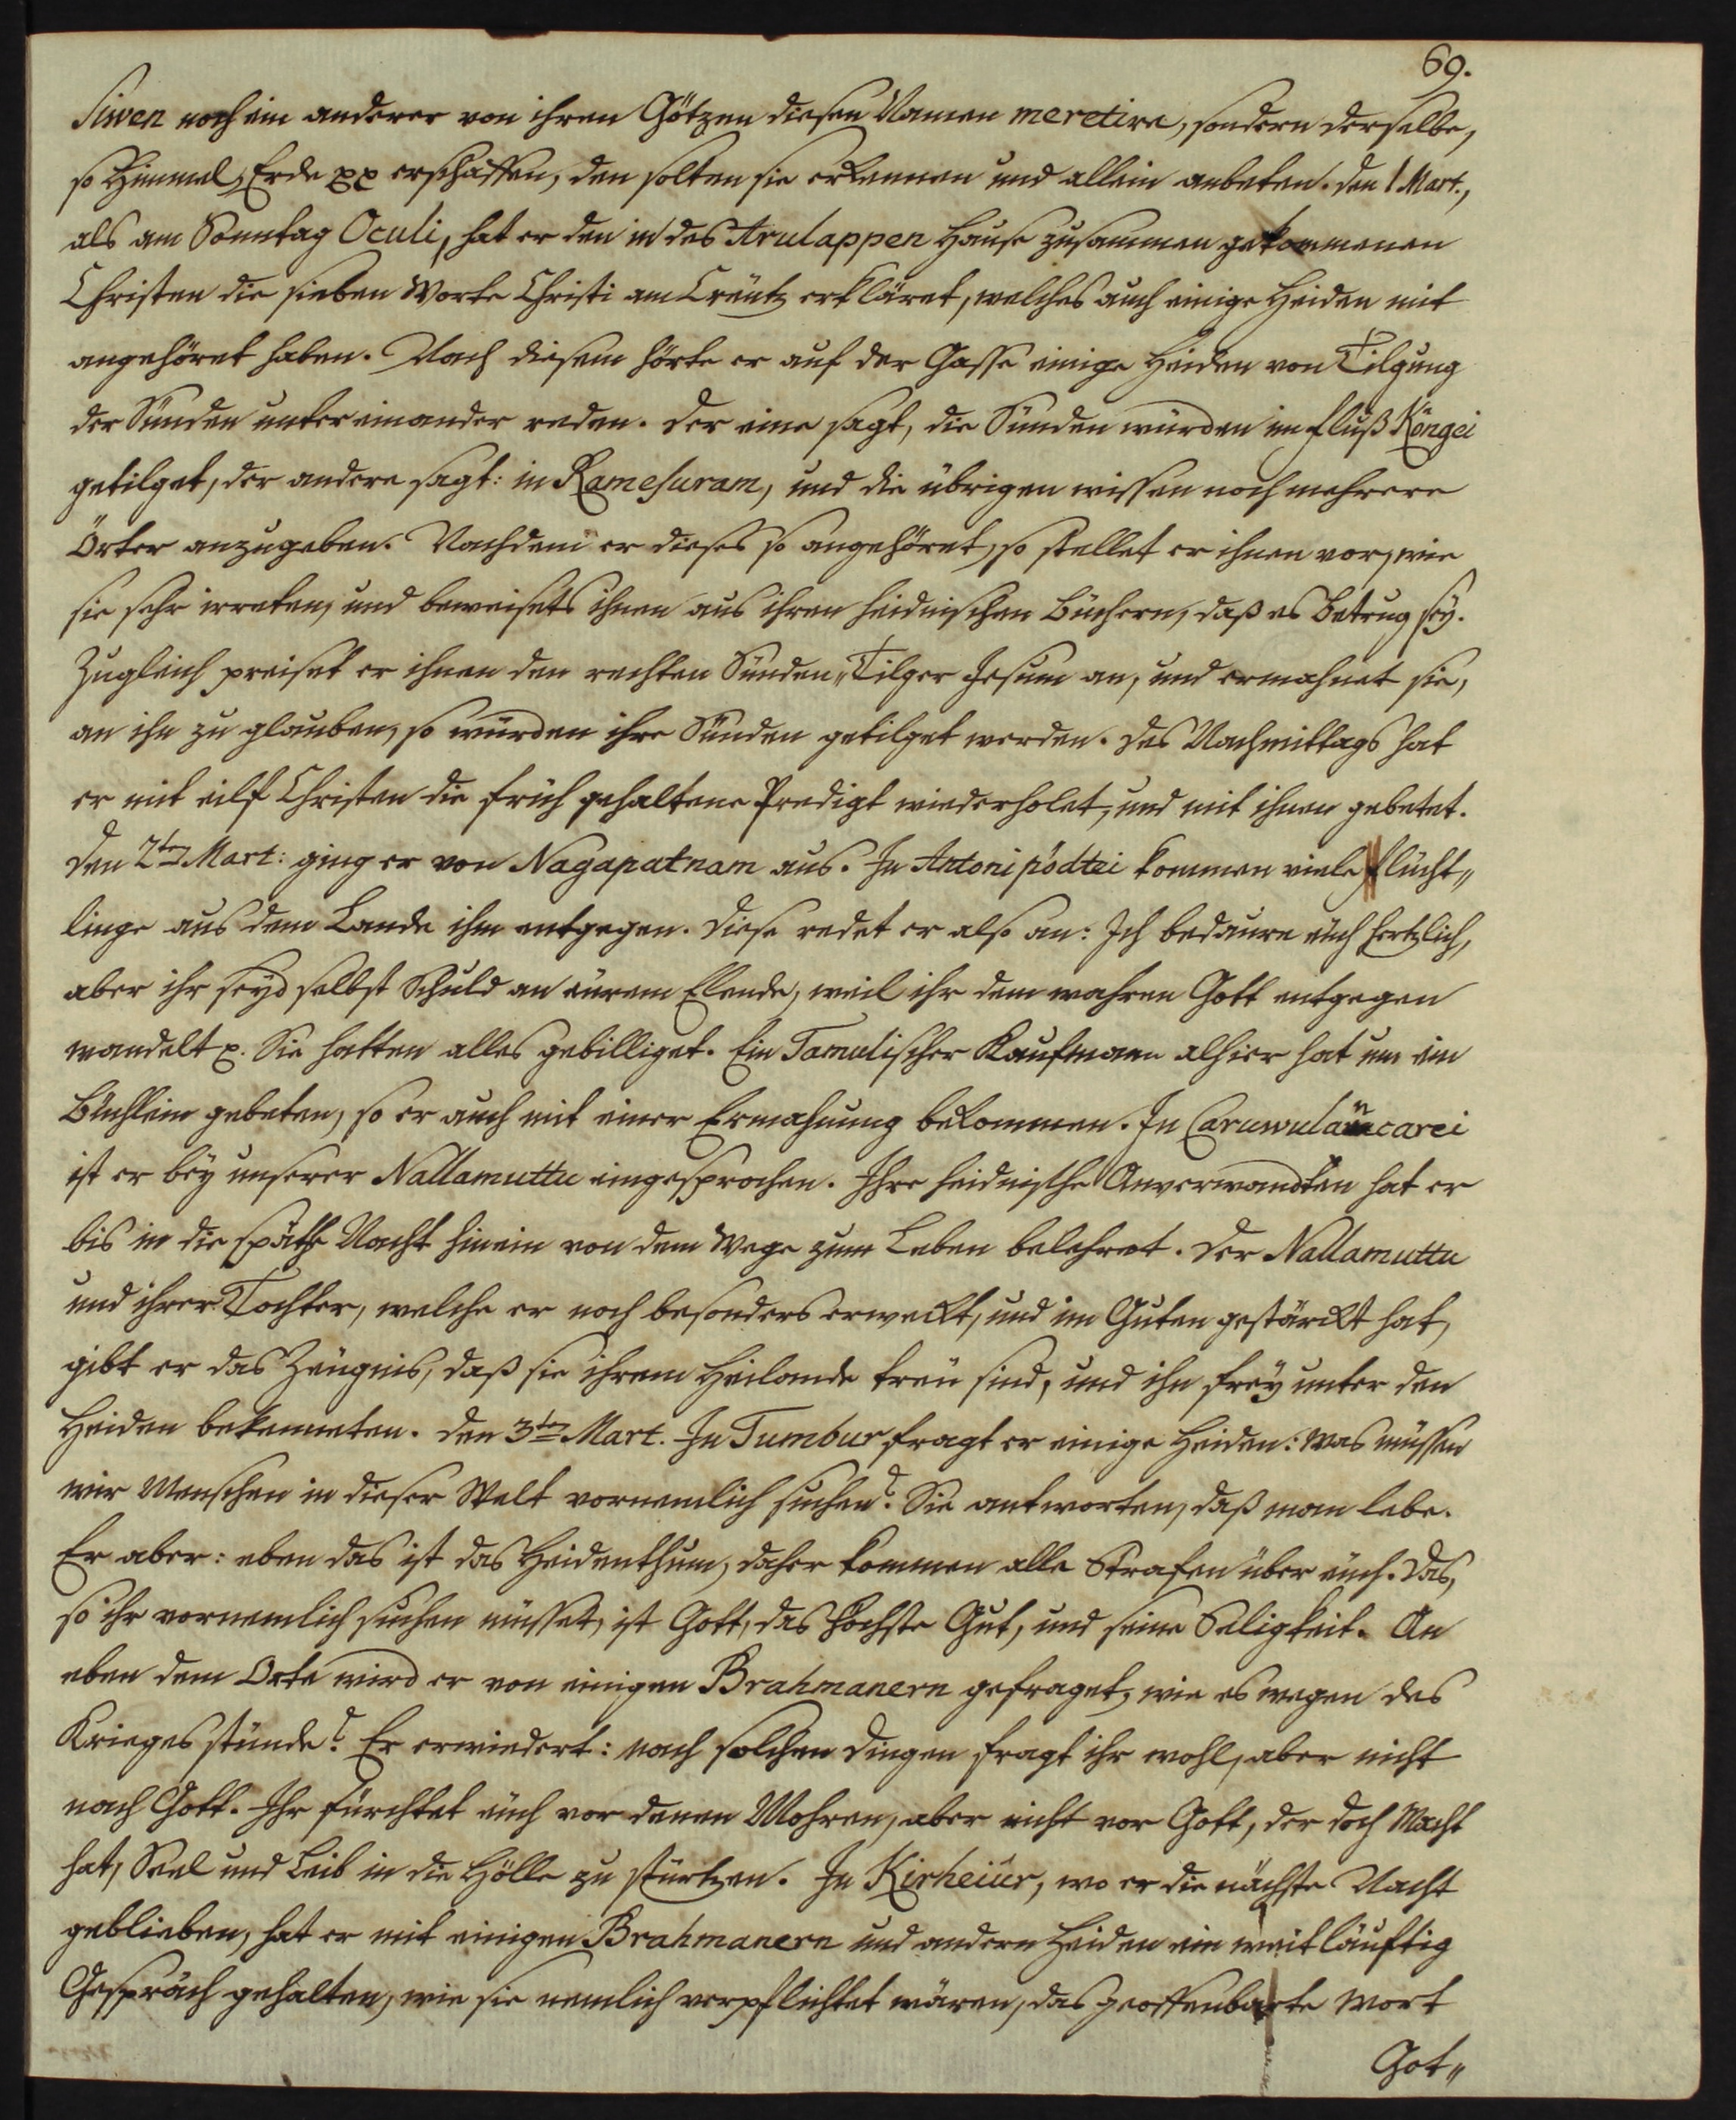 69.
Siwen noch ein anderer von ihren Götzen diesen Namen meretire, sondern derselbe,
so Himmel, Erde pp erschaffen, den solten sie erkennen und allein anbeten. Den 1 Mart.,
als am Sonntag Oculi, hat er den in des Arulappen Hause zusammen gekommenen
Christen die sieben Worte Christi am Creutz erkläret, welches auch einige Heiden mit
angehöret haben. Nach diesem hörte er auf der Gasse einige Heiden von Tilgung
der Sünden unter einander reden. Der eine sagt, die Sünden würden im Fluß Köngei
getilget, der andere sagt: in Ramesuram, und die übrigen wissen noch mehrere
Örter anzugeben. Nachdem er dieses so angehöret, so stellet er ihnen vor, wie
sie sehr irreten, und beweisets ihnen aus ihren heidnischen Büchern, daß es Betrug sey.
Zugleich preiset er ihnen den rechten Sünden„Tilger Jesum an, und ermahnet sie,
an ihn zu glauben, so würden ihre Sünden getilget werden. Des Nachmittags hat
er mit eilf Christen die früh gehaltene Predigt wiederholet, und mit ihnen gebetet.
Den 2ten Mart: ging er von Nagapatnam aus. In Antonipödtei kommen viele Flücht„
linge aus dem Lande ihm entgegen. Diese redet er also an: Ich bedaure euch hertzlich,
aber ihr seyd selbst Schuld an eurem Elende, weil ihr dem wahren Gott entgegen
wandelt p. Sie hatten alles gebilliget. Ein Tamulischer Kaufmann alhier hat um ein
Büchlein gebeten, so er auch mit einer Ermahnung bekommen. In Caruwulancarei
ist er bey unserer Nallamuttu eingesprochen. Ihre heidnische Anverwandten hat er
bis in die späthe Nacht hinein von dem Wege zum Leben belehret. Der Nallamuttu
und ihrer Tochter, welche er noch besonders erweckt, und im Guten gestärckt hat,
gibt er das Zeugnis, daß sie ihrem Heilande treu sind, und ihn frey unter den
Heiden bekenneten. Den 3ten Mart. In Tumbur fragt er einige Heiden: Was müssen
wir Menschen in dieser Welt vornemlich suchen? Sie antworten, daß man lebe.
Er aber: eben das ist das Heidenthum, daher kommen alle Strafen über euch. Das,
so ihr vornemlich suchen müsset, ist Gott, das höchste Gut, und seine Seligkeit. An
eben dem Orte wird er von einigen Brahmanern gefraget, wie es wegen des
Krieges stünde? Er erwiedert: nach solchen Dingen fragt ihr wohl, aber nicht
nach Gott. Ihr fürchtet euch vor denen Mohren, aber nicht vor Gott, der doch Macht
hat, Seel und Leib in die Hölle zu stürtzen. In Kirheiur, wo er die nächste Nacht
geblieben, hat er mit einigen Brahmanern und andern Heiden ein weitläuftig
Gespräch gehalten, wie sie nemlich verpflichtet wären, das geoffenbarte Wort
Got„